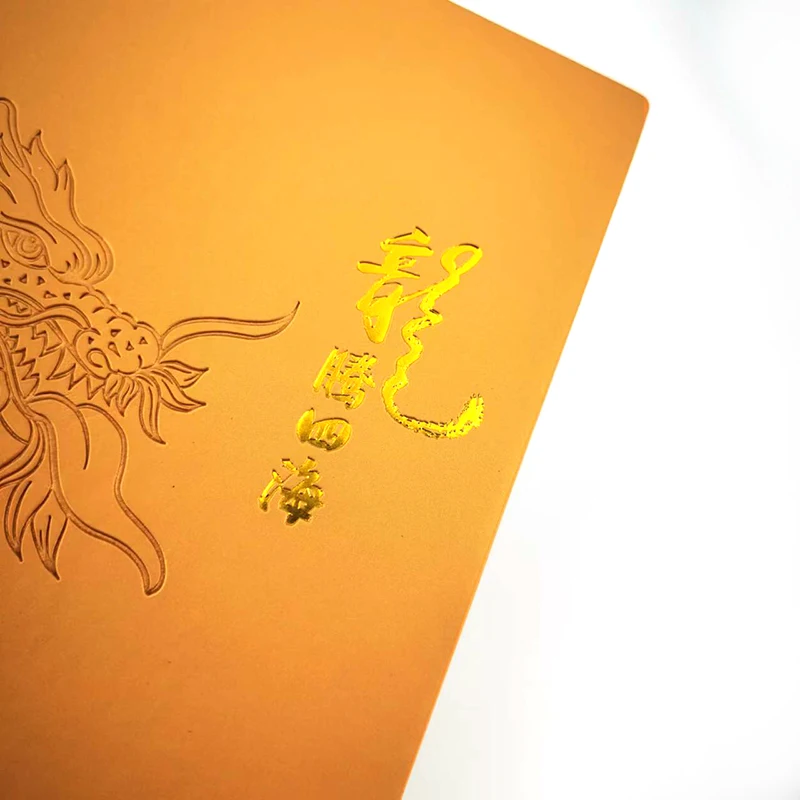 龍
騰四海